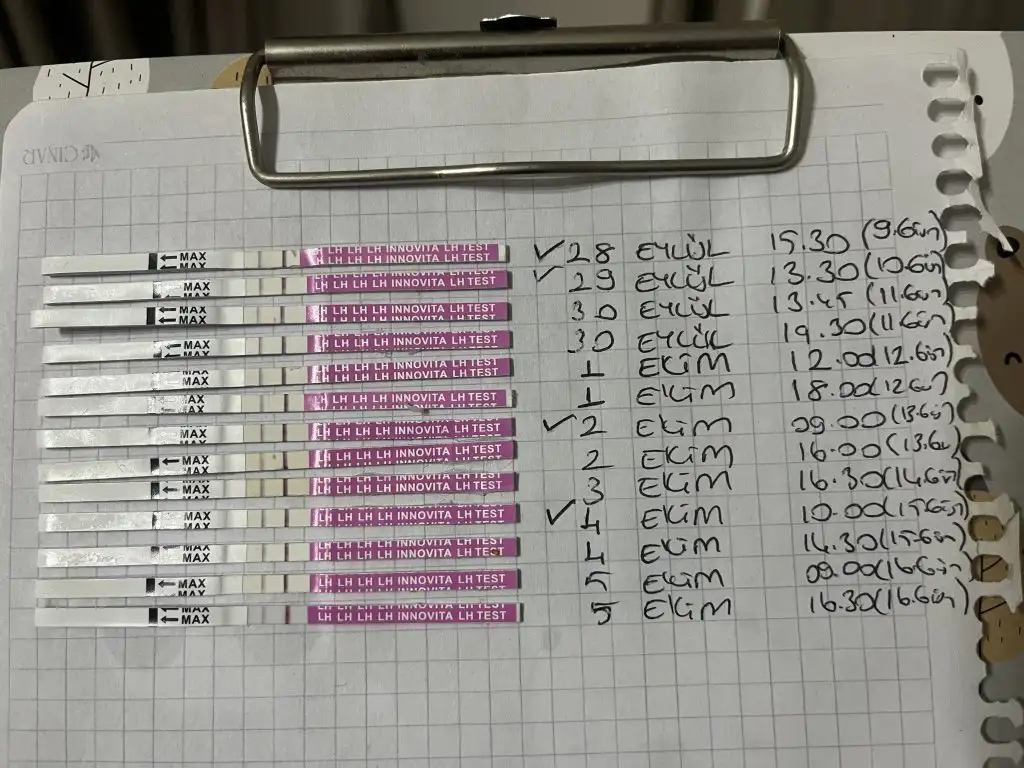 ÇINAR
← MAX LH LH LH INNOVITA LH TEST ✓ 28 EYLÜL 15.30 (9.Gün)
MAX LH LH LH INNOVITA LH TEST ✓ 29 EYLÜL 13.30 (10.Gün)
← MAX LH LH LH INNOVITA LH TEST 30 EYLÜL 13.45 (11.Gün)
← MAX LH LH LH INNOVITA LH TEST 30 EYLÜL 19.30 (11.Gün)
MAX LH LH LH INNOVITA LH TEST 1 EKİM 12.00 (12.Gün)
MAX LH LH LH INNOVITA LH TEST 1 EKİM 18.00 (12.Gün)
MAX LH LH LH INNOVITA LH TEST ✓ 2 EKİM 09.00 (13.Gün)
← MAX LH LH LH INNOVITA LH TEST 2 EKİM 16.00 (13.Gün)
← MAX LH LH LH INNOVITA LH TEST 3 EKİM 16.30 (14.Gün)
MAX LH LH LH INNOVITA LH TEST ✓ 4 EKİM 10.00 (15.Gün)
MAX LH LH LH INNOVITA LH TEST 4 EKİM 14.30 (15.Gün)
← MAX LH LH LH INNOVITA LH TEST 5 EKİM 09.00 (16.Gün)
← MAX LH LH LH INNOVITA LH TEST 5 EKİM 16.30 (16.Gün)